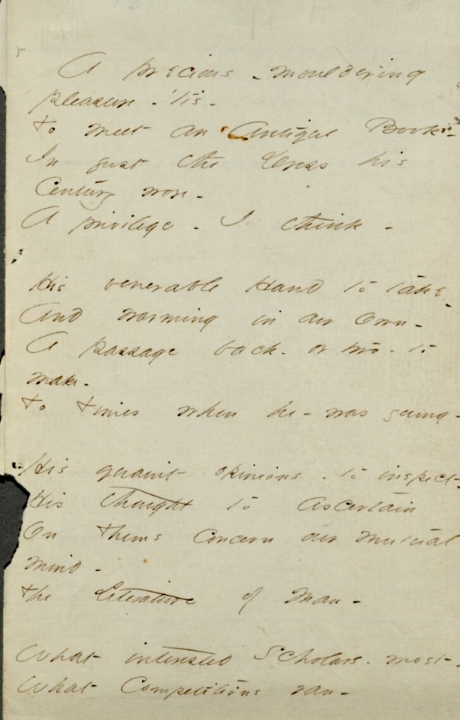 A precious - mouldering
pleasure - 'tis -
To meet an Antique Book -
In just the Dress his
Century wore -
A privilege - I think -
His venerable Hand to take -
And warming in our own -
A passage back - or two - to
make -
To Times when he - was young -
His quaint opinions - to inspect -
His thought to ascertain
On Themes concern our mutual
mind -
The Literature of Man -
What interested Scholars - most -
What Competitions ran -